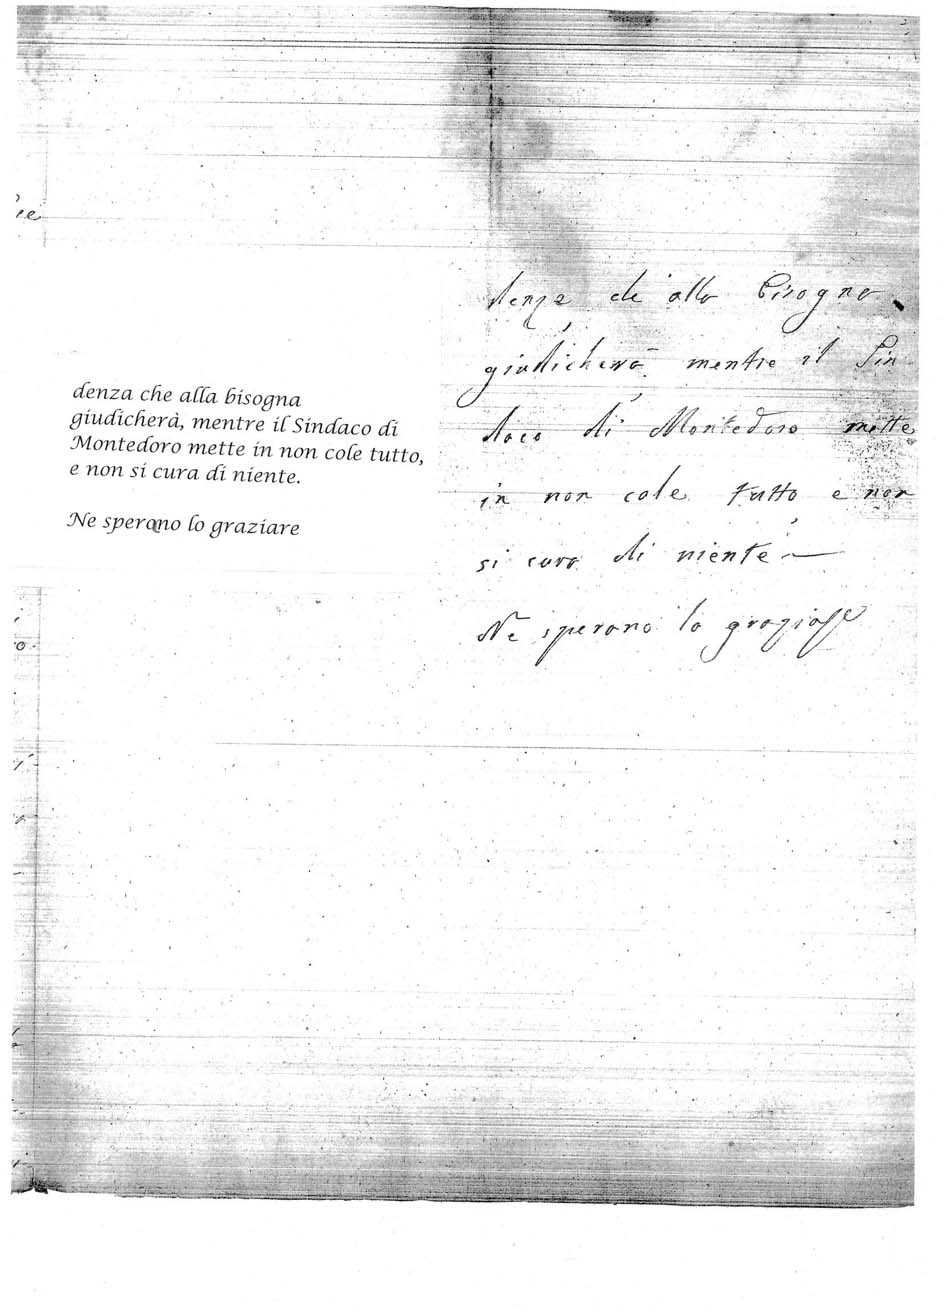 denza che alla bisogna
giudicherà, mentre il Sindaco di
Montedoro mette in non cole tutto,
e non si cura di niente.
Ne sperano lo graziare
denza che alla bisogna
giudicherà mentre il Sin
daco di Montedoro mette
in non cole tutto e non
si cura di niente —
Ne sperano la